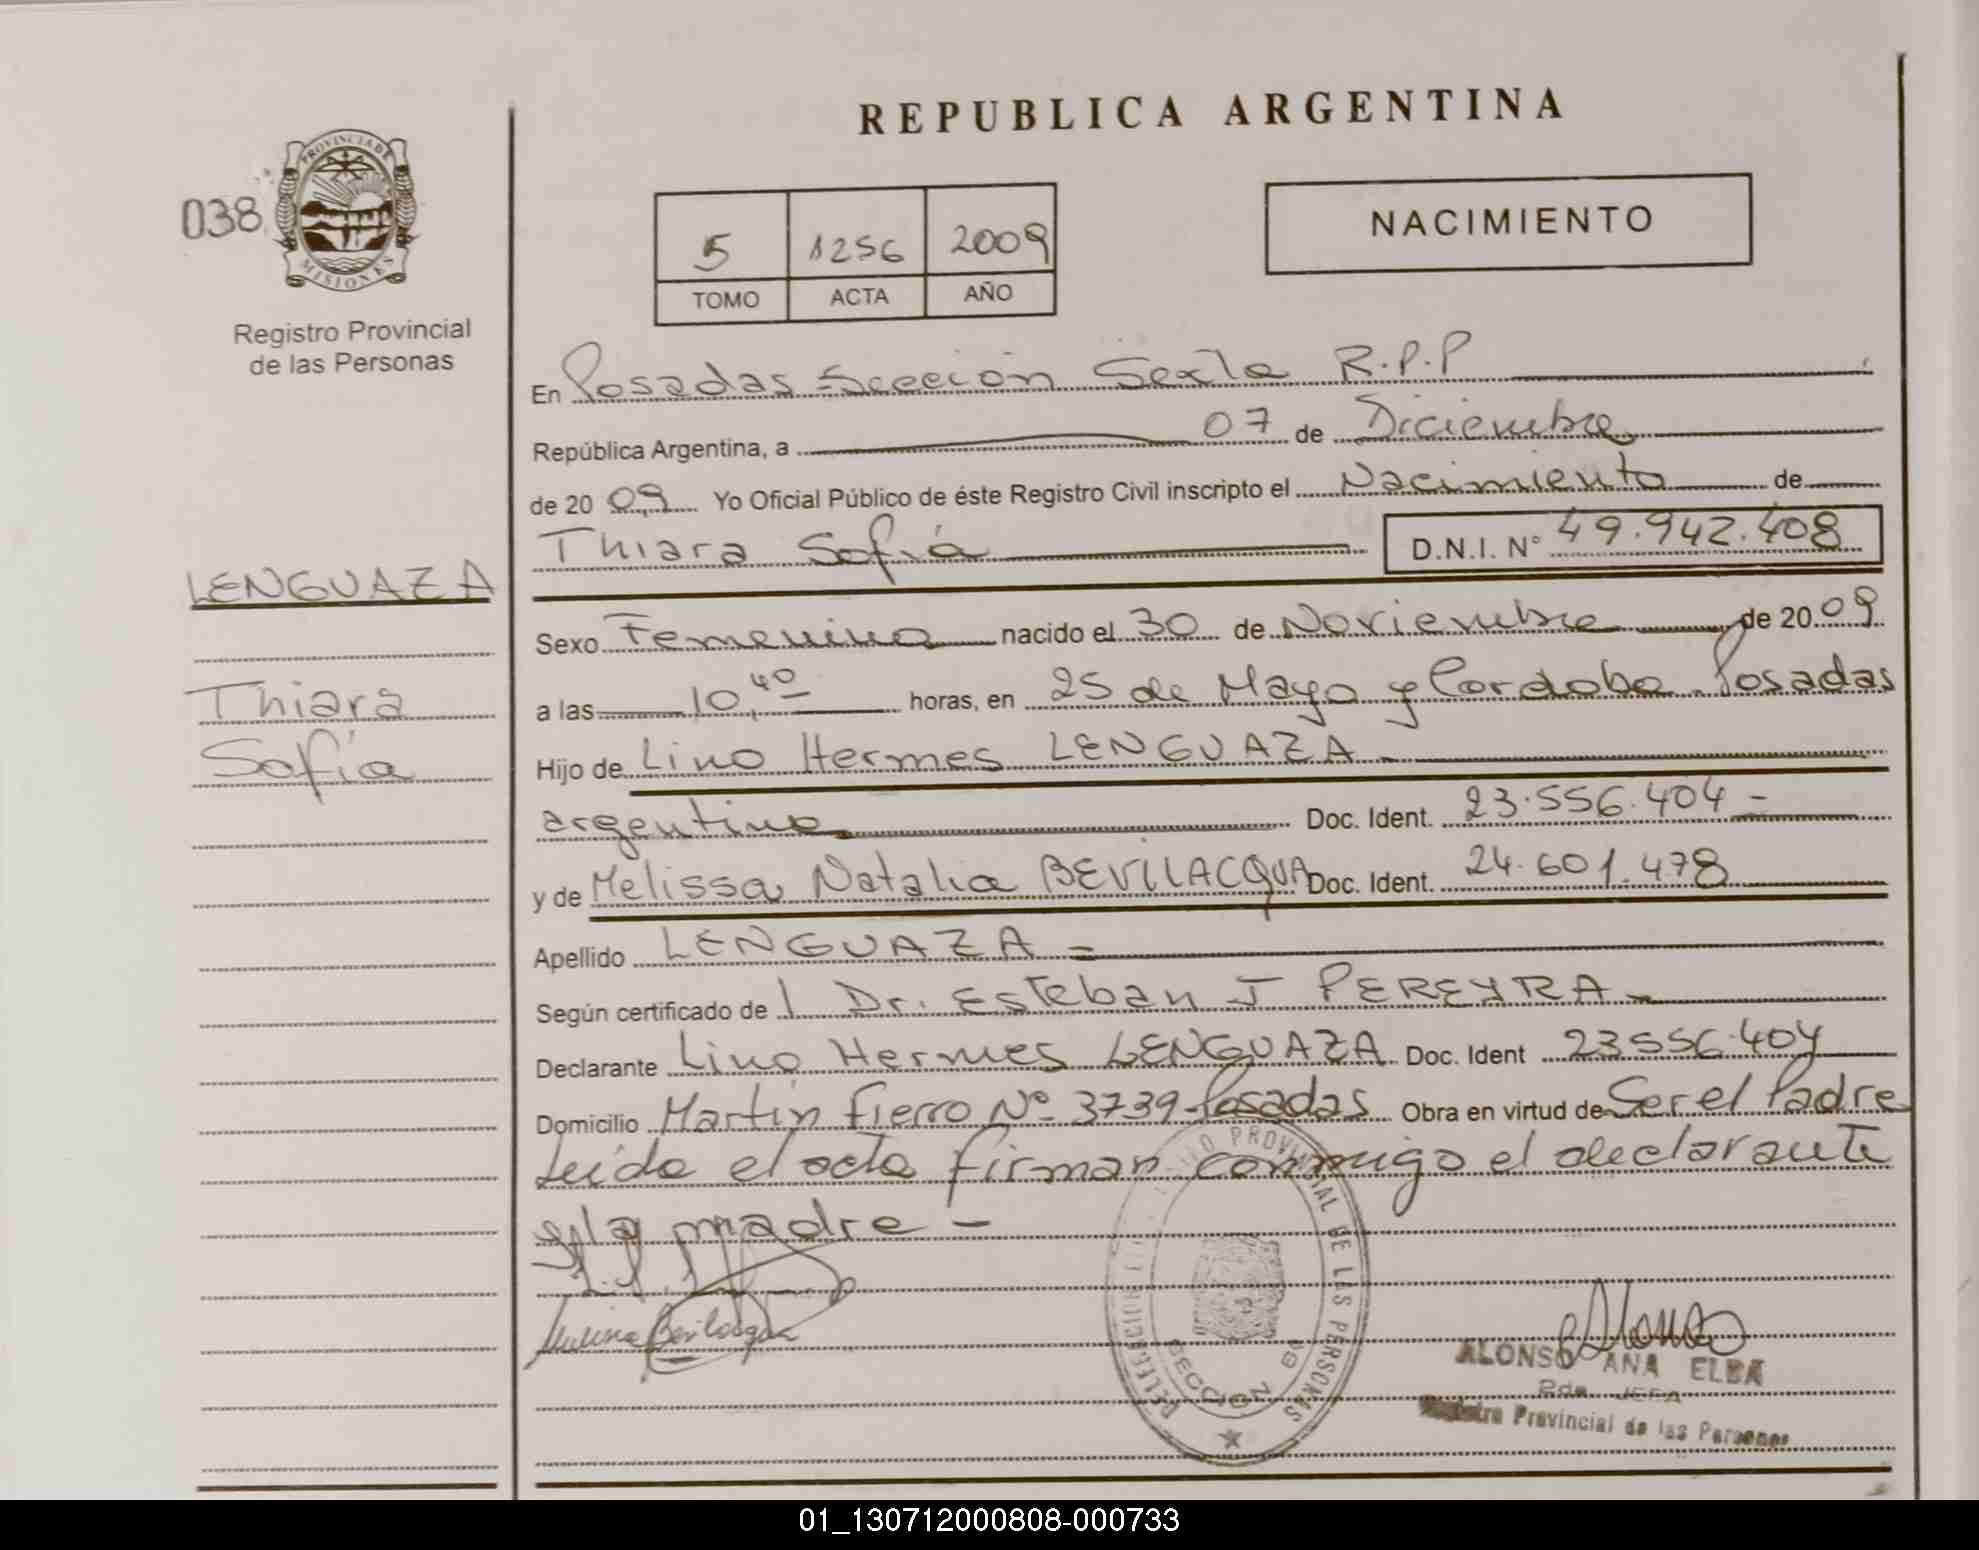 REPUBLICA ARGENTINA
PROVINCIA DE
MISIONES
038
Registro Provincial
de las Personas
5 1256 2009
TOMO ACTA AÑO
NACIMIENTO
En Posadas Sección Sexta R.P.P
República Argentina, a 07 de Diciembre
de 2009 Yo Oficial Público de éste Registro Civil inscripto el Nacimiento de
Thiara Sofía D.N.I. N° 49.942.408
LENGUAZA
Thiara
Sofía
Sexo Femenino nacido el 30 de Noviembre de 2009
a las 10,40 horas, en 25 de Mayo y Cordoba Posadas
Hijo de Lino Hermes LENGUAZA
argentino Doc. Ident. 23.556.404 -
y de Melissa Natalia BEVILACQUA Doc. Ident. 24.601.478
Apellido LENGUAZA
Según certificado de l Dr. Esteban J PEREYRA
Declarante Lino Hermes LENGUAZA Doc. Ident 23556.404
Domicilio Martín Fierro N° 3739-Posadas Obra en virtud de Ser el Padre
Leída el acta firman conmigo el declarante
y la madre -
PROVINCIAL DE LAS PERSONAS
SECCION
ALONSO ANA ELBA
JEFA
Registro Provincial de las Personas
01_130712000808-000733